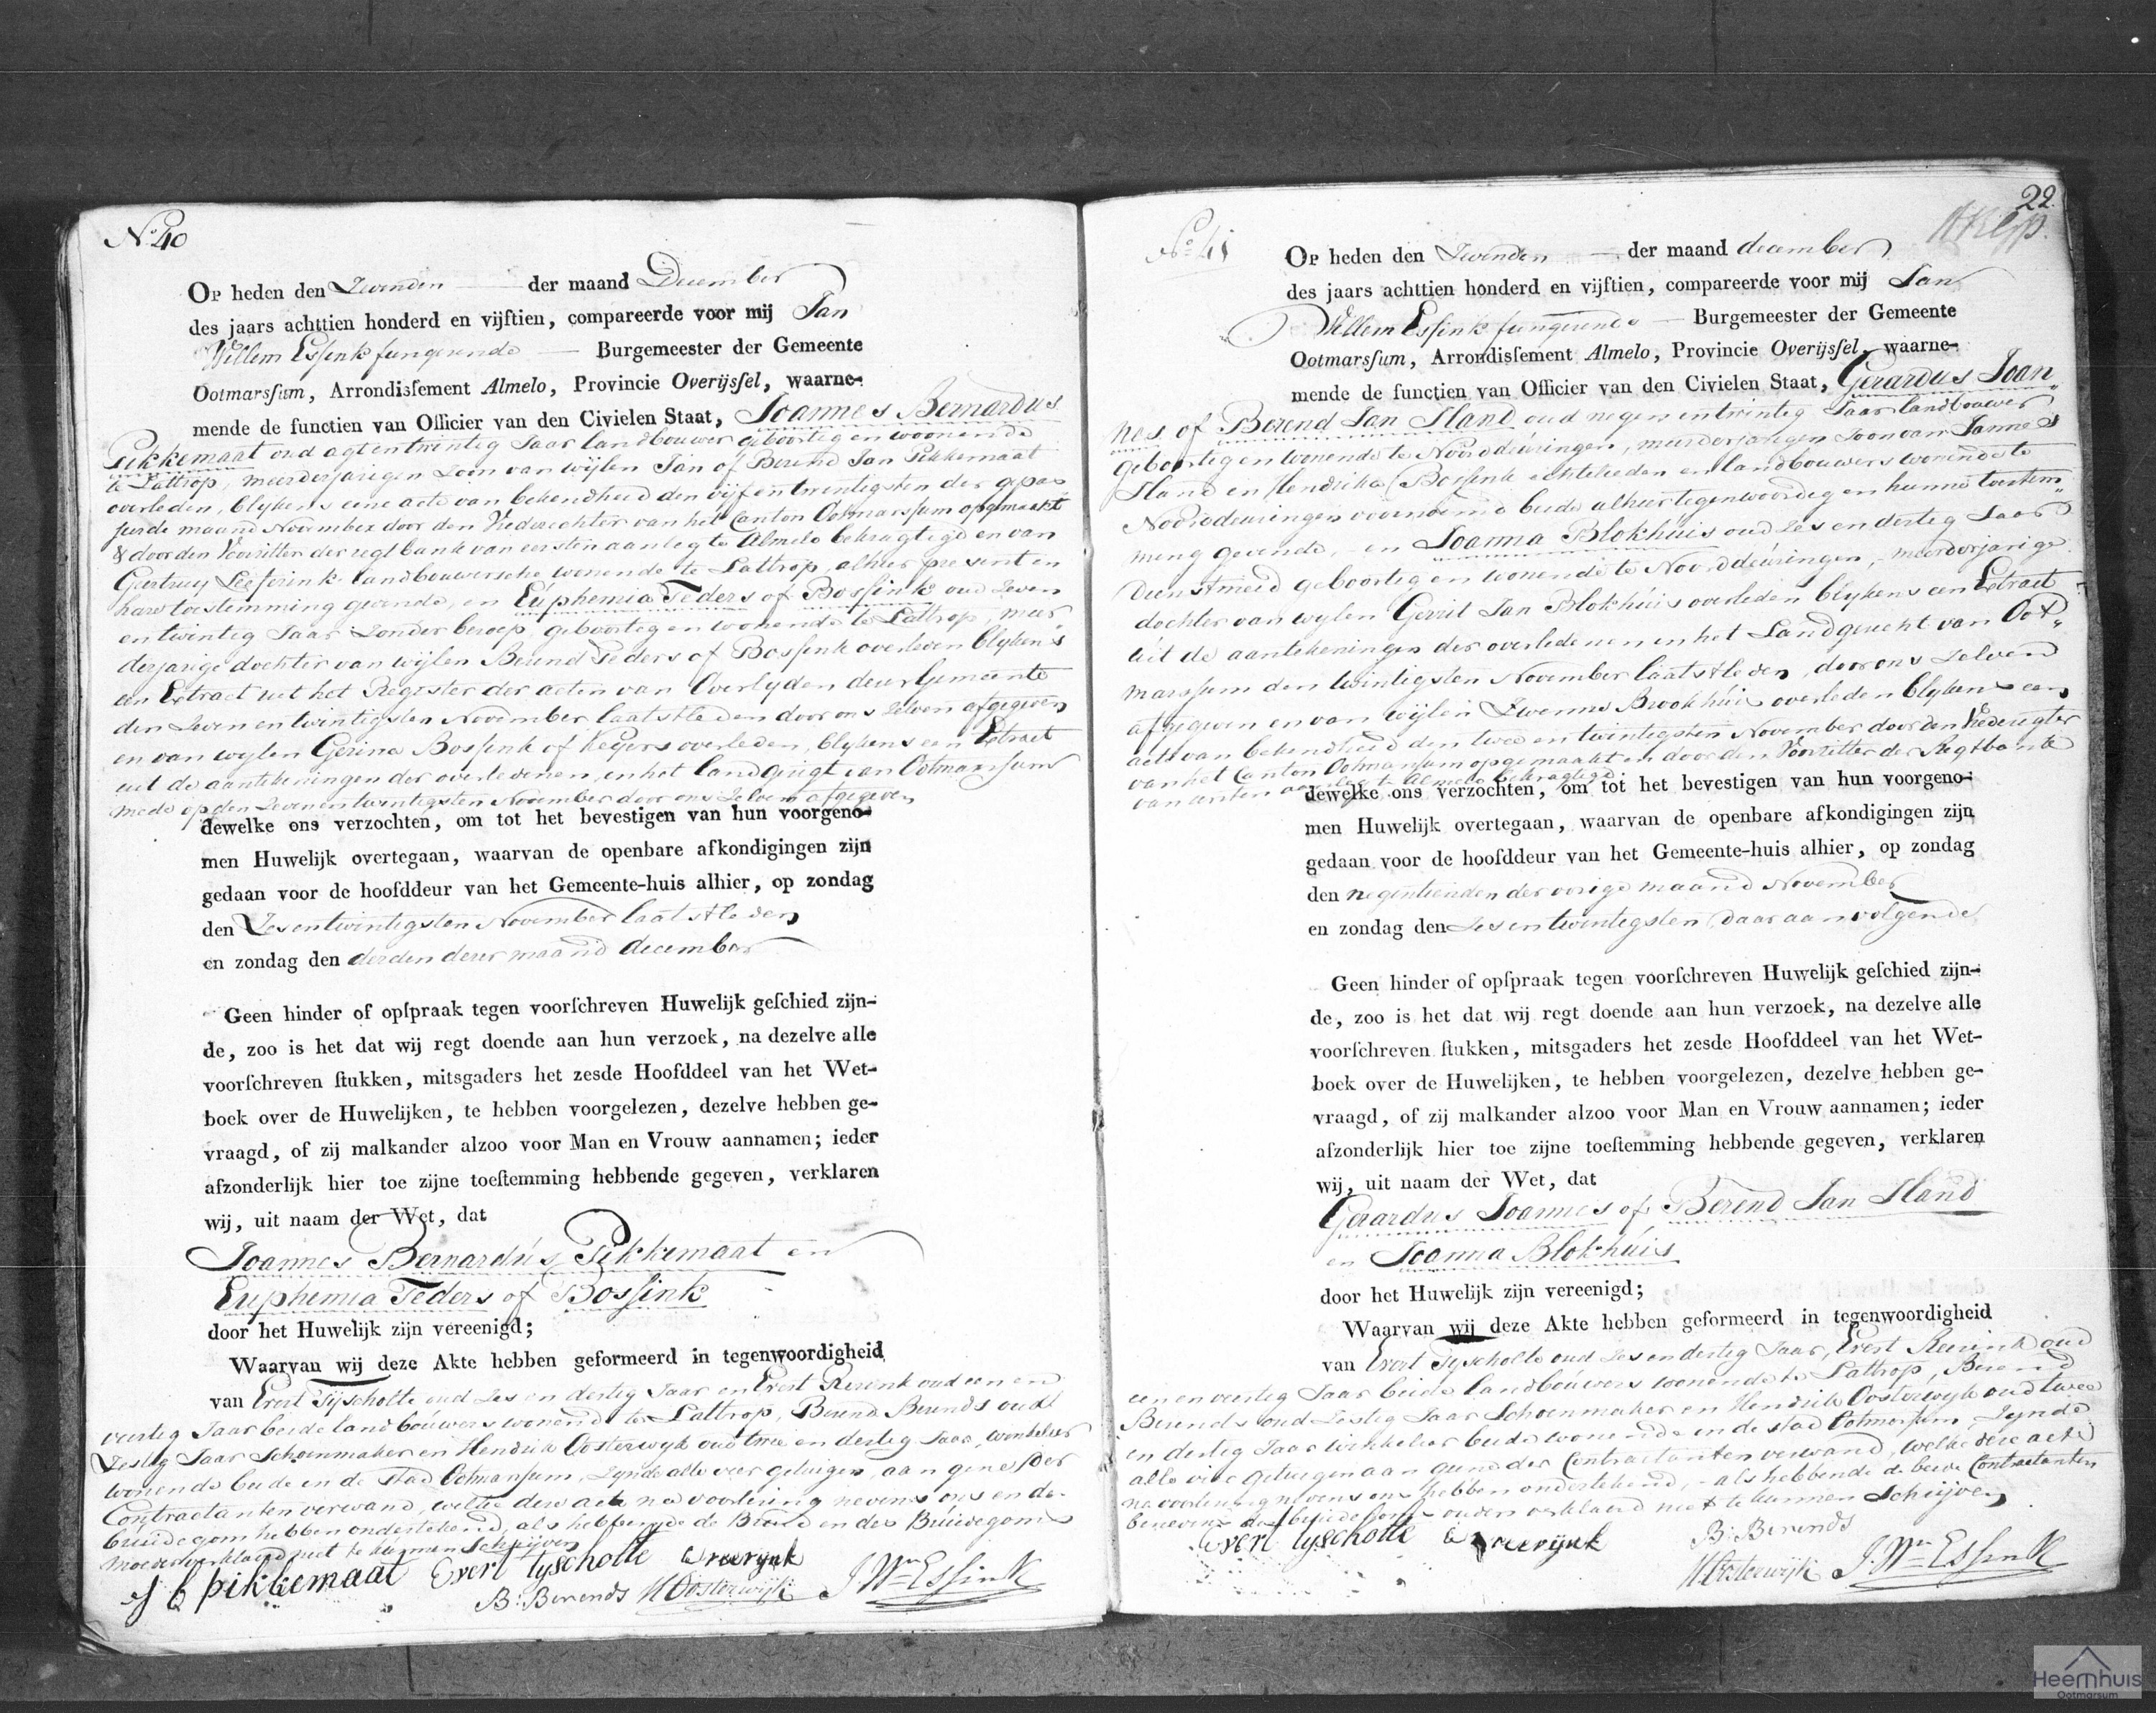 No. 40
Op heden den Zevenden der maand December
des jaars achttien honderd en vijftien, compareerde voor mij Jan
Willem Essink fungerende Burgemeester der Gemeente
Ootmarsſum, Arrondisſement Almelo, Provincie Overijsſel, waarne-
mende de functien van Officier van den Civielen Staat, Joannes Bernardus
Pikkemaat oud agt en twintig Jaar landbouwer geboortig en woonende
te Lattrop, meerderjarigen Zoon van wijlen Jan of Berend Jan Pikkemaat
overleden, blykens eene acte van bekendheid den vijf en twintigsten der gepas
seerde maand November door den Vrederechter van het Canton Ootmarssum opgemaakt
& door den Voorzitter der regtbank van eersten aanleg te Almelo bekragtigd en van
Geertruy Leeferink landbouwersche wonende te Lattrop, alhier present en
hare toestemming gevende, en Euphemia Teders of Bossink oud Zeven
en twintig Jaar Zonder beroep, geboortig en wonende te Lattrop, meer
derjarige dochter van wijlen Berend Teders of Bossink overleden blykens
een Extract uit het Register der acten van Overlyden deser Gemeente
den Zeven en twintigsten November laatstleden door ons Zelven afgegeven
en van wylen Gerina Bossink of Keyers overleden, blykens een Extract
uit de aantekeningen der overledenen in het landgerigt van Ootmarssum
mede op den Zeven en twintigsten November door ons Zelven afgegeven
dewelke ons verzochten, om tot het bevestigen van hun voorgeno-
men Huwelijk overtegaan, waarvan de openbare afkondigingen zijn
gedaan voor de hoofddeur van het Gemeente-huis alhier, op zondag
den Zes en twintigsten November laatstleden
en zondag den derden dezer maand december
Geen hinder of opſpraak tegen voorſchreven Huwelijk geſchied zijn-
de, zoo is het dat wij regt doende aan hun verzoek, na dezelve alle
voorſchreven ſtukken, mitsgaders het zesde Hoofddeel van het Wet-
boek over de Huwelijken, te hebben voorgelezen, dezelve hebben ge-
vraagd, of zij malkander alzoo voor Man en Vrouw aannamen; ieder
afzonderlijk hier toe zijne toeſtemming hebbende gegeven, verklaren
wij, uit naam der Wet, dat
Joannes Bernardús Pikkemaat en
Euphemia Teders of Bossink
door het Huwelijk zijn vereenigd;
Waarvan wij deze Akte hebben geformeerd in tegenwoordigheid
van Evert Tijscholte oud Zes en dertig Jaar en Evert Reerink oud een en
veertig Jaar beide landbouwers wonende te Lattrop, Berend Berends oud
Zestig Jaar Schoenmaker en Hendrik Oosterwyk oud twee en dertig Jaar, winkelier
wonende beide in de stad Ootmarssum, Zynde alle vier getuigen, aan gene der
Contractanten verwand, welke deze acte na voorlezing nevens ons en de
bruidegom hebben ondertekend, als hebbende de Bruid en des Bruidegoms
moeder verklaard niet te kunnen Schrijven
J B pikkemaat Evert tyscholte E reerynk
B: Berends H Oosterwijk J. Wm Essink
22.
No. 41
Op heden den Zevenden der maand december
des jaars achttien honderd en vijftien, compareerde voor mij Jan
Willem Essink fungerende Burgemeester der Gemeente
Ootmarsſum, Arrondisſement Almelo, Provincie Overijsſel, waarne-
mende de functien van Officier van den Civielen Staat, Gerardus Joan
nes of Berend Jan Sland oud negen en twintig Jaar landbouwer
geboortig en wonende te Noorddeúringen, meerderjarigen Zoon van Jannes
Sland en Hendrika Bossink echtelieden en landbouwers wonende te
Noorddeuringen voornoemd beide alhier tegenwoordig en hunne toestem
ming gevende, en Joanna Blokhúis oud Zes en dertig Jaar
Dienstmeid geboortig en wonende te Noorddeúringen, meerderjarige
dochter van wylen Gerrit Jan Blokhúis overleden blykens een Extract
úit de aantekeningen der overledenen in het Landgericht van Oot
marssum den twintigsten November laatstleden, door ons Zelven
afgegeven en van wijlen Zwenne Brookhúis overleden blykens een
acte van bekendheid den twee en twintigsten November door den Vrederegter
van het Canton Ootmarssum opgemaakt en door den Voorzitter der Regtbank
van eersten aanleg te Almelo bekragtigd
dewelke ons verzochten, om tot het bevestigen van hun voorgeno-
men Huwelijk overtegaan, waarvan de openbare afkondigingen zijn
gedaan voor de hoofddeur van het Gemeente-huis alhier, op zondag
den negentienden der vorige maand November
en zondag den Zes en twintigsten daaraanvolgende
Geen hinder of opſpraak tegen voorſchreven Huwelijk geſchied zijn-
de, zoo is het dat wij regt doende aan hun verzoek, na dezelve alle
voorſchreven ſtukken, mitsgaders het zesde Hoofddeel van het Wet-
boek over de Huwelijken, te hebben voorgelezen, dezelve hebben ge-
vraagd, of zij malkander alzoo voor Man en Vrouw aannamen; ieder
afzonderlijk hier toe zijne toeſtemming hebbende gegeven, verklaren
wij, uit naam der Wet, dat
Gerardus Joannes of Berend Jan Sland
en Joanna Blokhúis
door het Huwelijk zijn vereenigd;
Waarvan wij deze Akte hebben geformeerd in tegenwoordigheid
van Evert Tyscholte oud Zes en dertig Jaar, Evert Reerink oud
een en veertig Jaar beide landbouwers wonende te Lattrop, Berend
Berends oud Zestig Jaar Schoenmaker en Hendrik Oosterwyk oud twee
en dertig Jaar winkelier beide wonende in de stad Ootmarssum, Zynde
alle vier getuigen aan gene der Contractanten verwand, welke deze acte
na voorlezing nevens ons hebben ondertekend, als hebbende de beide Contractanten
benevens des bruidegoms ouders verklaard niet te kunnen Schrijven
Evert tyscholte E reerijnk B: Berends
H Oosterwijk J. Wm Essink
Heemhuis
Ootmarsum